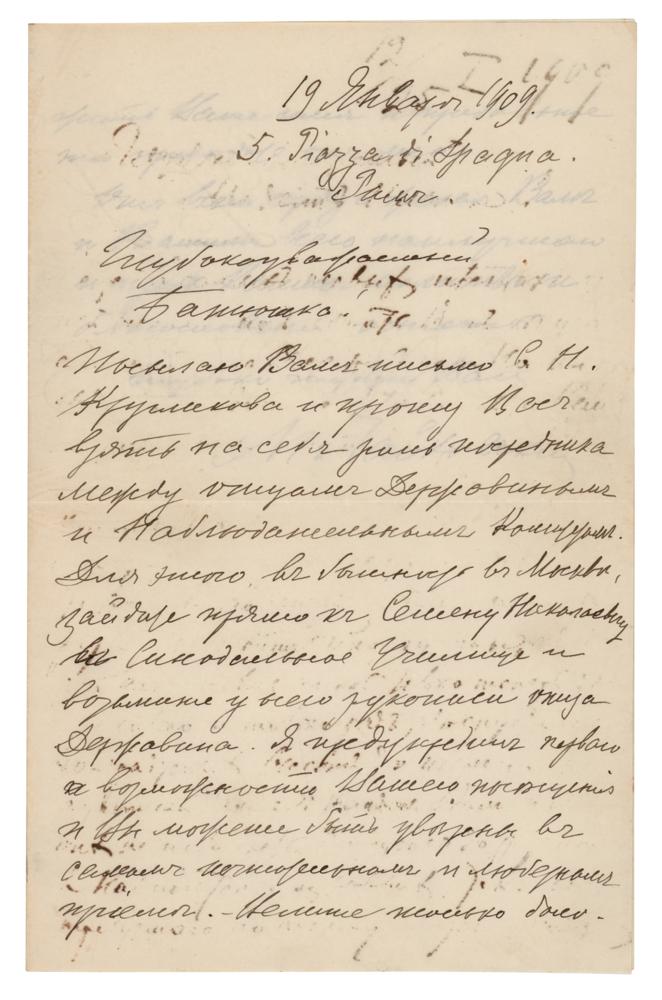 19 Января 1909.
5. Piazza di Spagna.
Римъ.
Глубокоуважаемый
Батюшка.
Посылаю Вамъ письмо С. Н.
Кругликова и прошу Васъ
взять на себя роль посредника
между отцомъ Державинымъ
и Наблюдательнымъ Комитетомъ.
Для этого въ бытность въ Москвѣ,
зайдите прямо къ Семену Николаевичу
въ Синодальное Училище и
возьмите у него рукописи отца
Державина. Я предупредилъ перваго
о возможности Вашего посѣщенія
и Вы можете быть увѣрены въ
самомъ почтительномъ и любезномъ
пріемѣ. – только